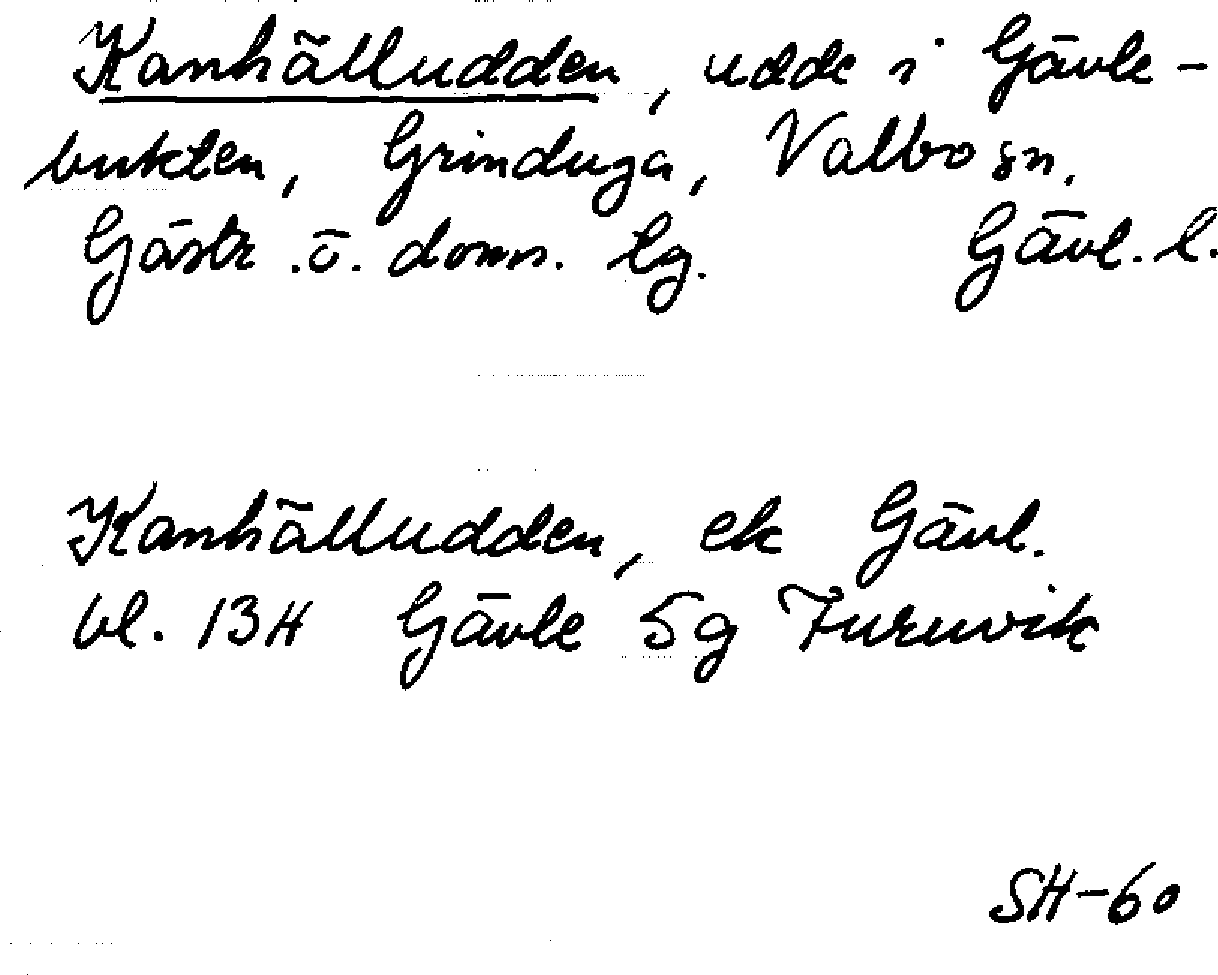 Kanhälludden, udde i Gävle-
bukten, Grinduga, Valbo sn.
Gästr. ö. doms. lg. Gävl. l.
Kanhälludden, ek Gävl.
bl. 13H Gävle 5g Furuvik
SH-60